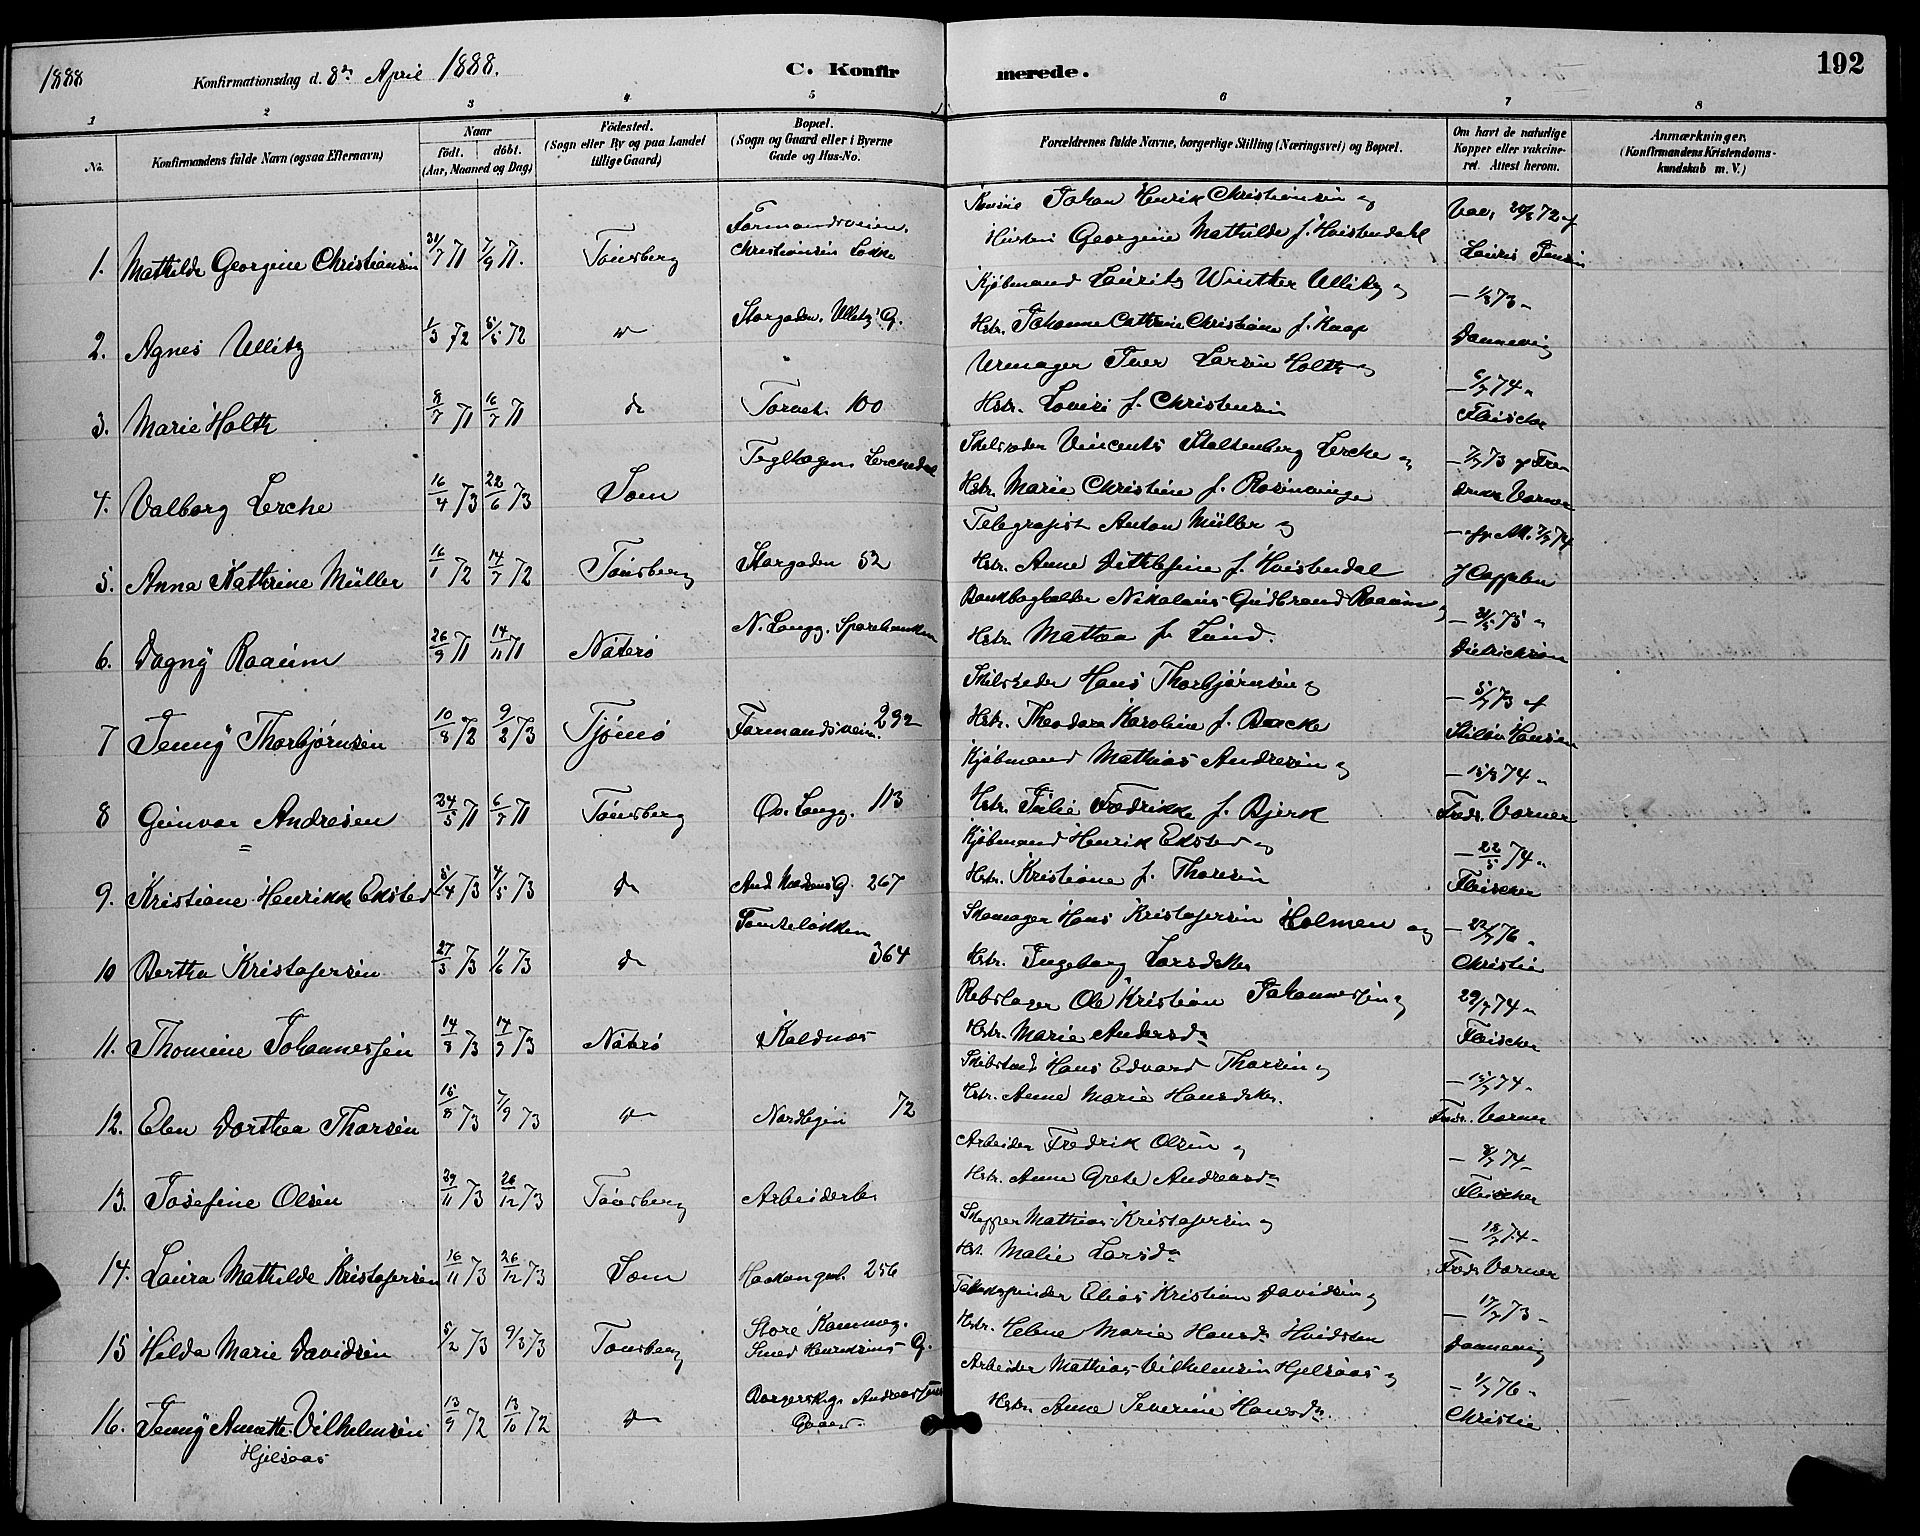 1888
Konfirmationsdag d. 8de April 1888.
C. Konfirmerede.
192
1 2 3 4 5 6 7 8
No.
Konfirmandens fulde Navn (ogsaa Efternavn)
Naar
født. døbt.
(Aar, Maaned og Dag)
Födested.
(Sogn eller By og paa Landet
tillige Gaard)
Bopæl.
(Sogn og Gaard eller i Byerne
Gade og Hus-No.
Forældrenes fulde Navne, borgerlige Stilling (Næringsvei) og Bopæl.
Om havt de naturlige
Kopper eller vakcine-
ret. Attest herom.
Anmærkninger.
(Konfirmandens Kristendoms-
kundskab m. V.)
1. Mathilde Georgine Christiansen 31/7 71 7/9 71. Tönsberg Formandsveien. Christiansen Løkke
Johan Henrik Christiansen og
Hustru Georgine Mathilde f. Hvistendahl
Lauris Jensen
2. Agnes Ullitz 1/3 72 5/5 72 do Storgaden. Ullitz' G.
Kjøbmand Lauritz Winther Ullitz og
Hstr. Johanne Cathrine Christiane f. Kaap
Dannevig
3. Marie Holth 8/7 71 16/7 71 do Torvet 100
Urmager Iver Larsen Holth og
Hstr. Lovise f. Christensen
– 6/7 74 "
Fleischer
4. Valborg Lerche 16/4 73 22/6 73 Sem Teglhagen Lerchedal
Vincents Stoltenberg Lerche og
Hstr. Marie Christine f. Rosenvinge
5. Anna Kathrine Müller 16/1 72 14/7 72 Tönsberg Storgaden 52
Telegrafist Anton Müller og
Hstr. Anne Ditlefine f. Hvistendal
J Cappelen
6. Dagny Raaum 26/9 71 14/11 71 Nøterø N. Langg. Sparebanken
Bankbogholder Nikolaus Gudbrand Raaum og
Hstr. Mathea f. Lund.
Dietrichson
7 Jenny Thorbjørnsen 10/8 72 9/2 73 Tjømø Formandsveien. 292
Skibsreder Hans Thorbjørnsen og
Hstr. Theodora Karoline f. Backe
– 5/7 73 af
Hansen
8 Gunvor Andresen 24/5 71 6/7 71 Tönsberg Öv. Langg. 113
Kjøbmand Mathias Andresen og
Hstr. Julie Fredrikke f. Bjerk
Fredr. Vorner
9. Kristiane Henrikke Eksted 5/4 73 4/5 73 do And Madsens G. 267
Kjøbmand Henrik Eksted og
Hstr. Kristiane f. Thorsen
– 22/5 74 "
Fleischer
10 Bertha Kristofersen 27/3 73 11/6 73 do Fonteløkken 364
Skomager Hans Kristofersen Holmen og
Hstr. Ingeborg Larsdtter
– 22/7 76 "
Christie
11. Thomine Johannessen 14/8 73 14/9 73 Nøterø Kaldnæs
Rebslager Ole Kristian Johannessen og
Hstr. Marie Andersdr
29/7 74 "
Fleischer
12. Elen Dorthea Thorsen 15/8 73 7/9 73 do Nordbyen 72
Hans Edvard Thorsen og
Hstr. Anne Marie Hansdtter.
– 15/7 74 –
Fredr. Vorner
13. Josefine Olsen 29/11 73 26/12 73 Tönsberg Arbeiderb.
Arbeider Fredrik Olsen og
Hstr. Anne Grete Andreasdr
– 8/7 74 –
Fleischer
14. Laura Mathilde Kristofersen 16/11 73 26/12 73 Sem Haakongad. 256
Skipper Mathias Kristofersen og
Hst. Malie Larsdr
– 18/7 74 –
Fredr Vorner
15 Hilda Marie Davidsen 5/2 73 9/3 73 Tonsberg Store Kammeg. Smed Henriksens G.
Tobakspinder Elias Kristian Davidsen og
Hstr. Helene Marie Hansdr Hvidsten
– 17/7 73 –
Dannevig
16. Jenny Annette Vilhelmsen Hjelsaas 13/9 72 13/10 72 do
Arbeider Mathias Vilhelmsen Hjelsaas og
Hstr. Anne Severine Hansdr.
Christie